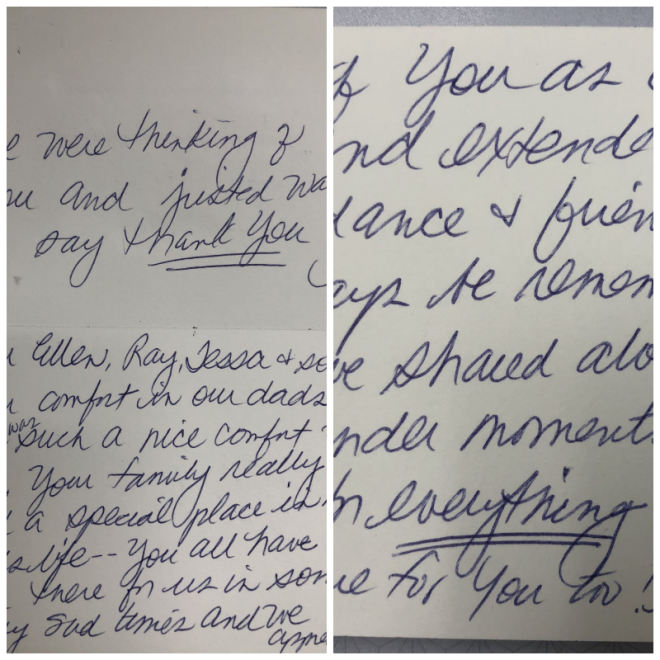 e were thinking of
ou and justed wa
say thank you
Ellen, Ray, Tessa & so
comfort in our dads
was such a nice comfort
Your family really
a special place in
s life -- You all have
there for us in som
y sad times and we
appre
of You as
nd extende
dance & frien
ays be remem
ve shared alo
nder moment
for everything
ve for you too!